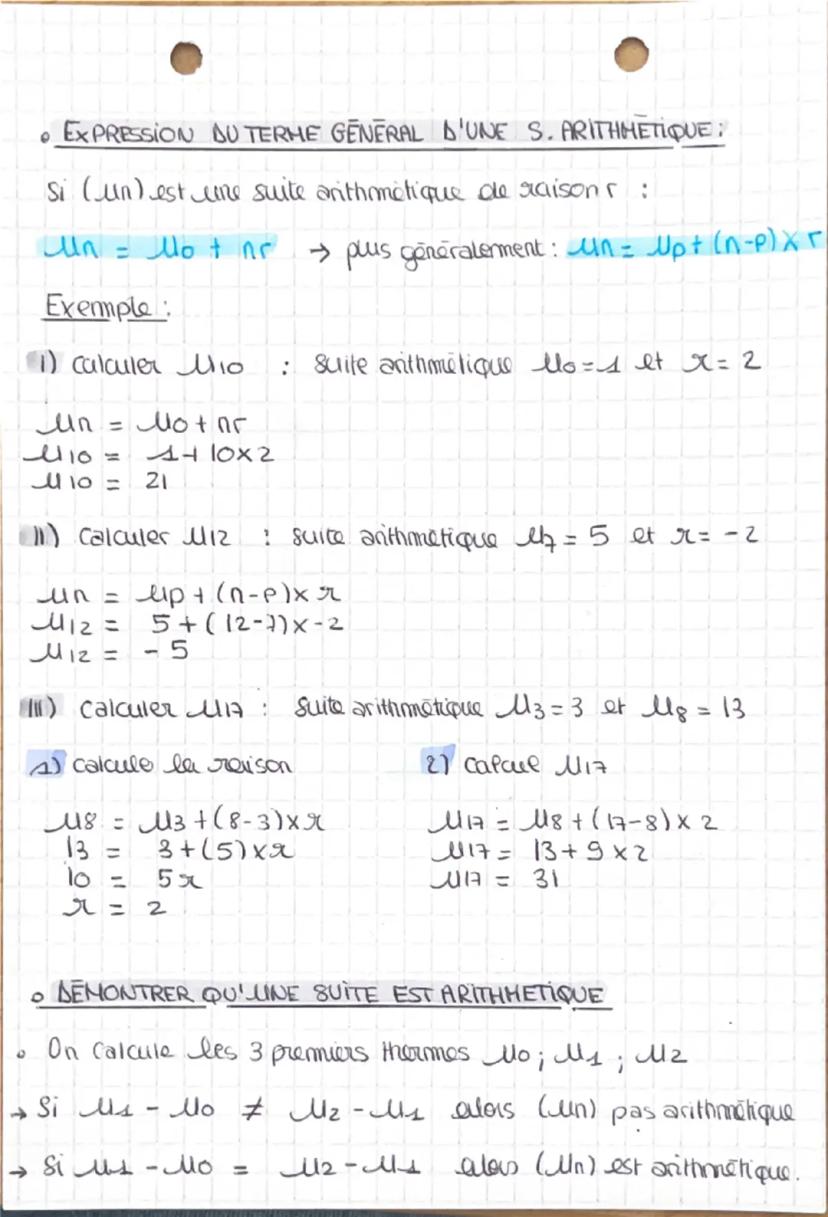 • EXPRESSION DU TERME GÉNÉRAL D'UNE S. ARITHMÉTIQUE :
Si (un) est une suite arithmétique de raison r :
un = u0 + nr → plus généralement : un = up + (n-p) x r
Exemple :
I) calculer u10 : suite arithmétique u0 = 1 et r = 2
un = u0 + nr
u10 = 1 + 10 x 2
u10 = 21
II) calculer u12 : suite arithmétique u7 = 5 et r = -2
un = up + (n-p) x r
u12 = 5 + (12-7) x -2
u12 = -5
III) calculer u17 : suite arithmétique u3 = 3 et u8 = 13
1) calcule la raison
u8 = u3 + (8-3) x r
13 = 3 + (5) x r
10 = 5r
r = 2
2) calcule u17
u17 = u8 + (17-8) x 2
u17 = 13 + 9 x 2
u17 = 31
• DÉMONTRER QU'UNE SUITE EST ARITHMETIQUE
• On calcule les 3 premiers thermes u0 ; u1 ; u2
→ Si u1 - u0 ≠ u2 - u1 alors (un) pas arithmétique
→ Si u1 - u0 = u2 - u1 alors (un) est arithmétique.